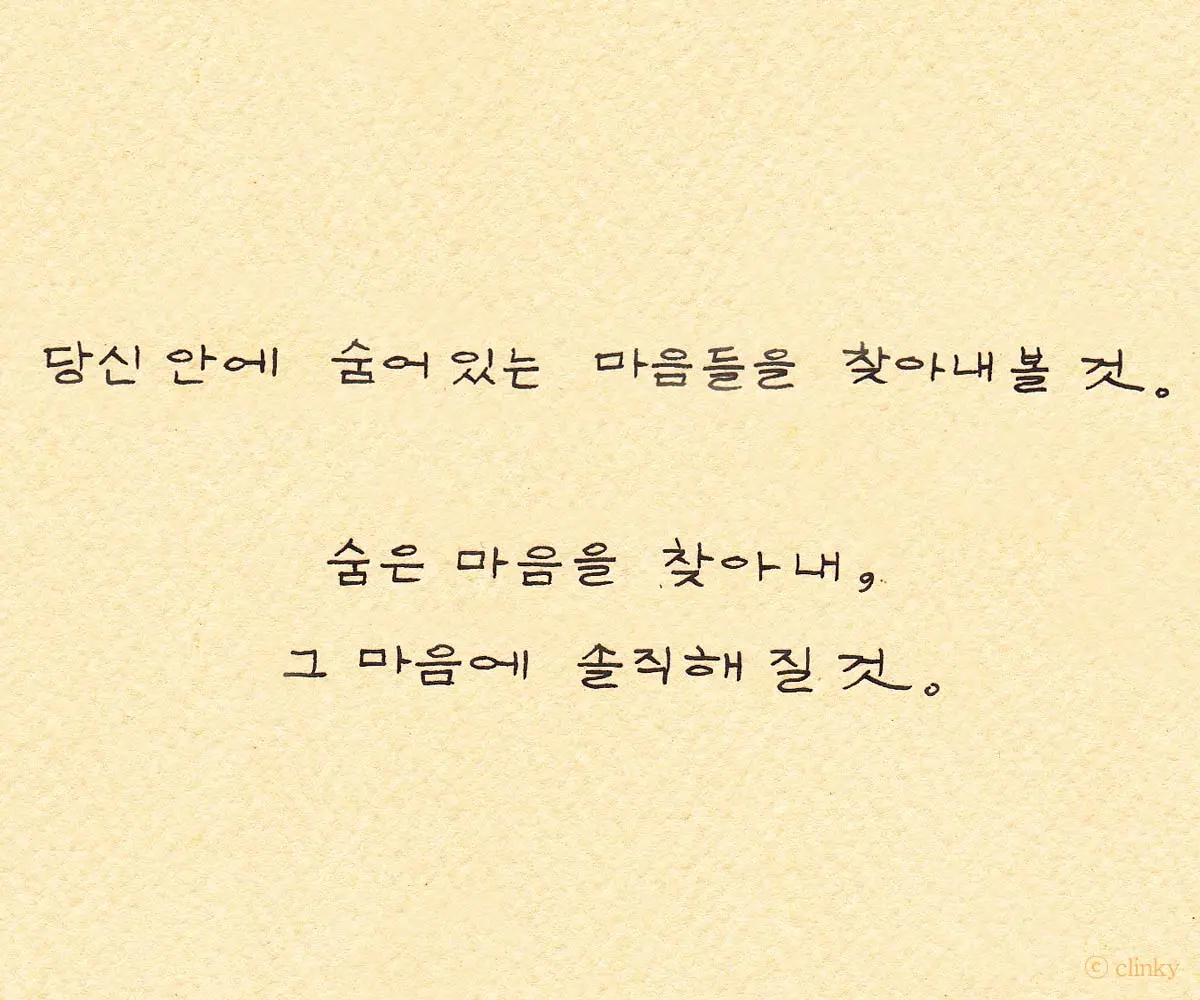 당신 안에 숨어 있는 마음들을 찾아내 볼 것。
숨은 마음을 찾아내,
그 마음에 솔직해 질 것。
ⓒ clinky